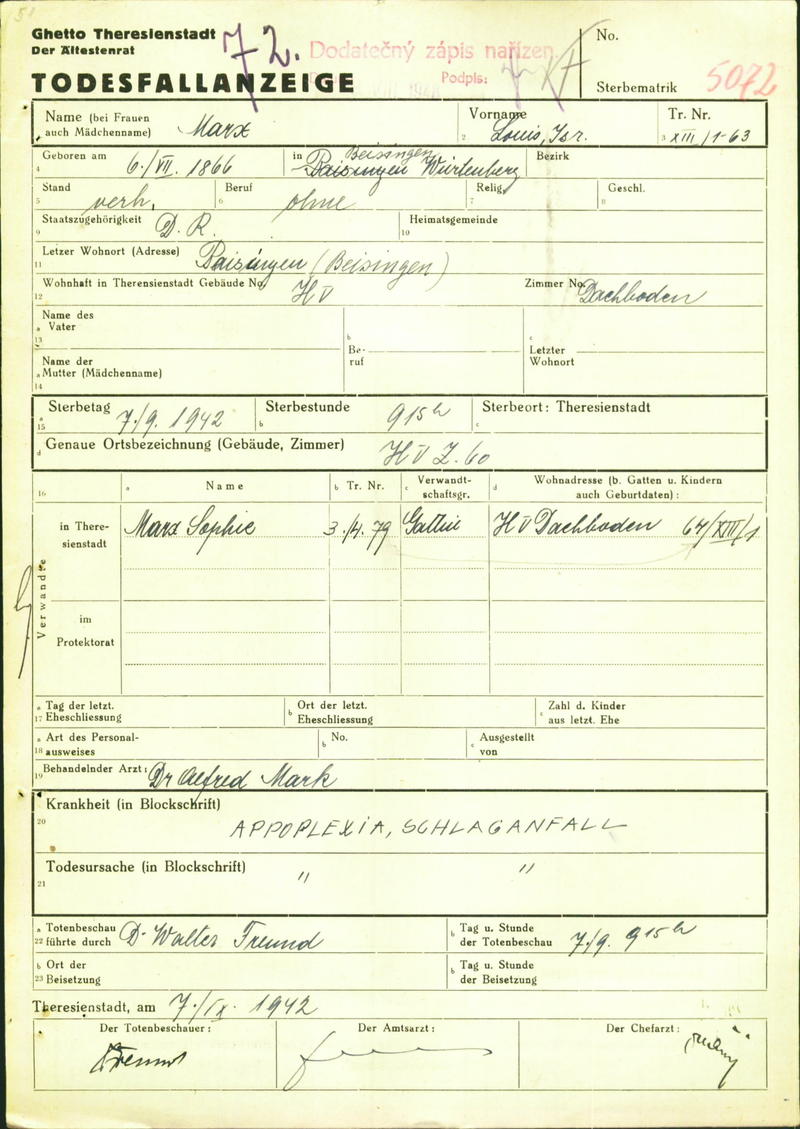 Ghetto Theresienstadt
Der Ältestenrat
72.
Dodatečný zápis nařízen
Podpis:
No.
TODESFALLANZEIGE
Sterbematrik 5072
Name (bei Frauen auch Mädchenname) Marx
Vorname Louis, Isr.
Tr. Nr. XIII/1-63
Geboren am 6./VII. 1866
in Baisingen Beisingen Würtenberg
Bezirk
Stand verh.
Beruf ohne
Relig.
Geschl.
Staatszugehörigkeit D. R.
Heimatsgemeinde
Letzer Wohnort (Adresse) Baisingen (Beisingen)
Wohnhaft in Therensienstadt Gebäude No. HV
Zimmer No. Dachboden
Name des Vater
Beruf
Letzter Wohnort
Name der Mutter (Mädchenname)
Sterbetag 7./9. 1942
Sterbestunde 9 15 h
Sterbeort: Theresienstadt
Genaue Ortsbezeichnung (Gebäude, Zimmer) HV Z. 60
Name
Tr. Nr.
Verwandtschaftsgr.
Wohnadresse (b. Gatten u. Kindern auch Geburtdaten):
Verwandte
in Theresienstadt
Marx Sophie 3./4. 79 Gattin HV Dachboden 64/XIII/1
im Protektorat
Tag der letzt. Eheschliessung
Ort der letzt. Eheschliessung
Zahl d. Kinder aus letzt. Ehe
Art des Personalausweises
No.
Ausgestellt von
Behandelnder Arzt: Dr Alfred Mark
Krankheit (in Blockschrift)
APPOPLEXIA, SCHLAGANFALL
Todesursache (in Blockschrift)
" "
Totenbeschau führte durch Dr Walter Freund
Tag u. Stunde der Totenbeschau 7./9. 9 15 h
Ort der Beisetzung
Tag u. Stunde der Beisetzung
Theresienstadt, am 7./IX. 1942
Der Totenbeschauer:
Der Amtsarzt:
Der Chefarzt:
Freund